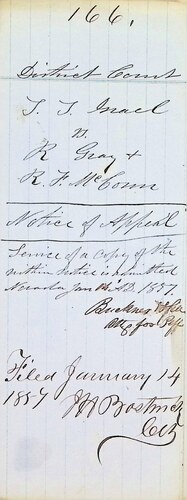 166.
District Court
T. T. Israel
vs.
R Gray &
R. F. McConn
Notice of Appeal
Service of a copy of the
within notice is admitted
Nevada Jan A.D. 1857
Buckner &
Atty for Plff
Filed January 14
1857 Bostwick
Clk